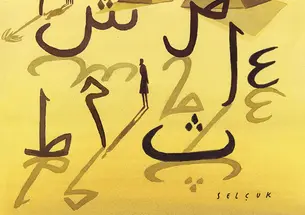 ش ص
ع ل
ط م ث
SELÇUK